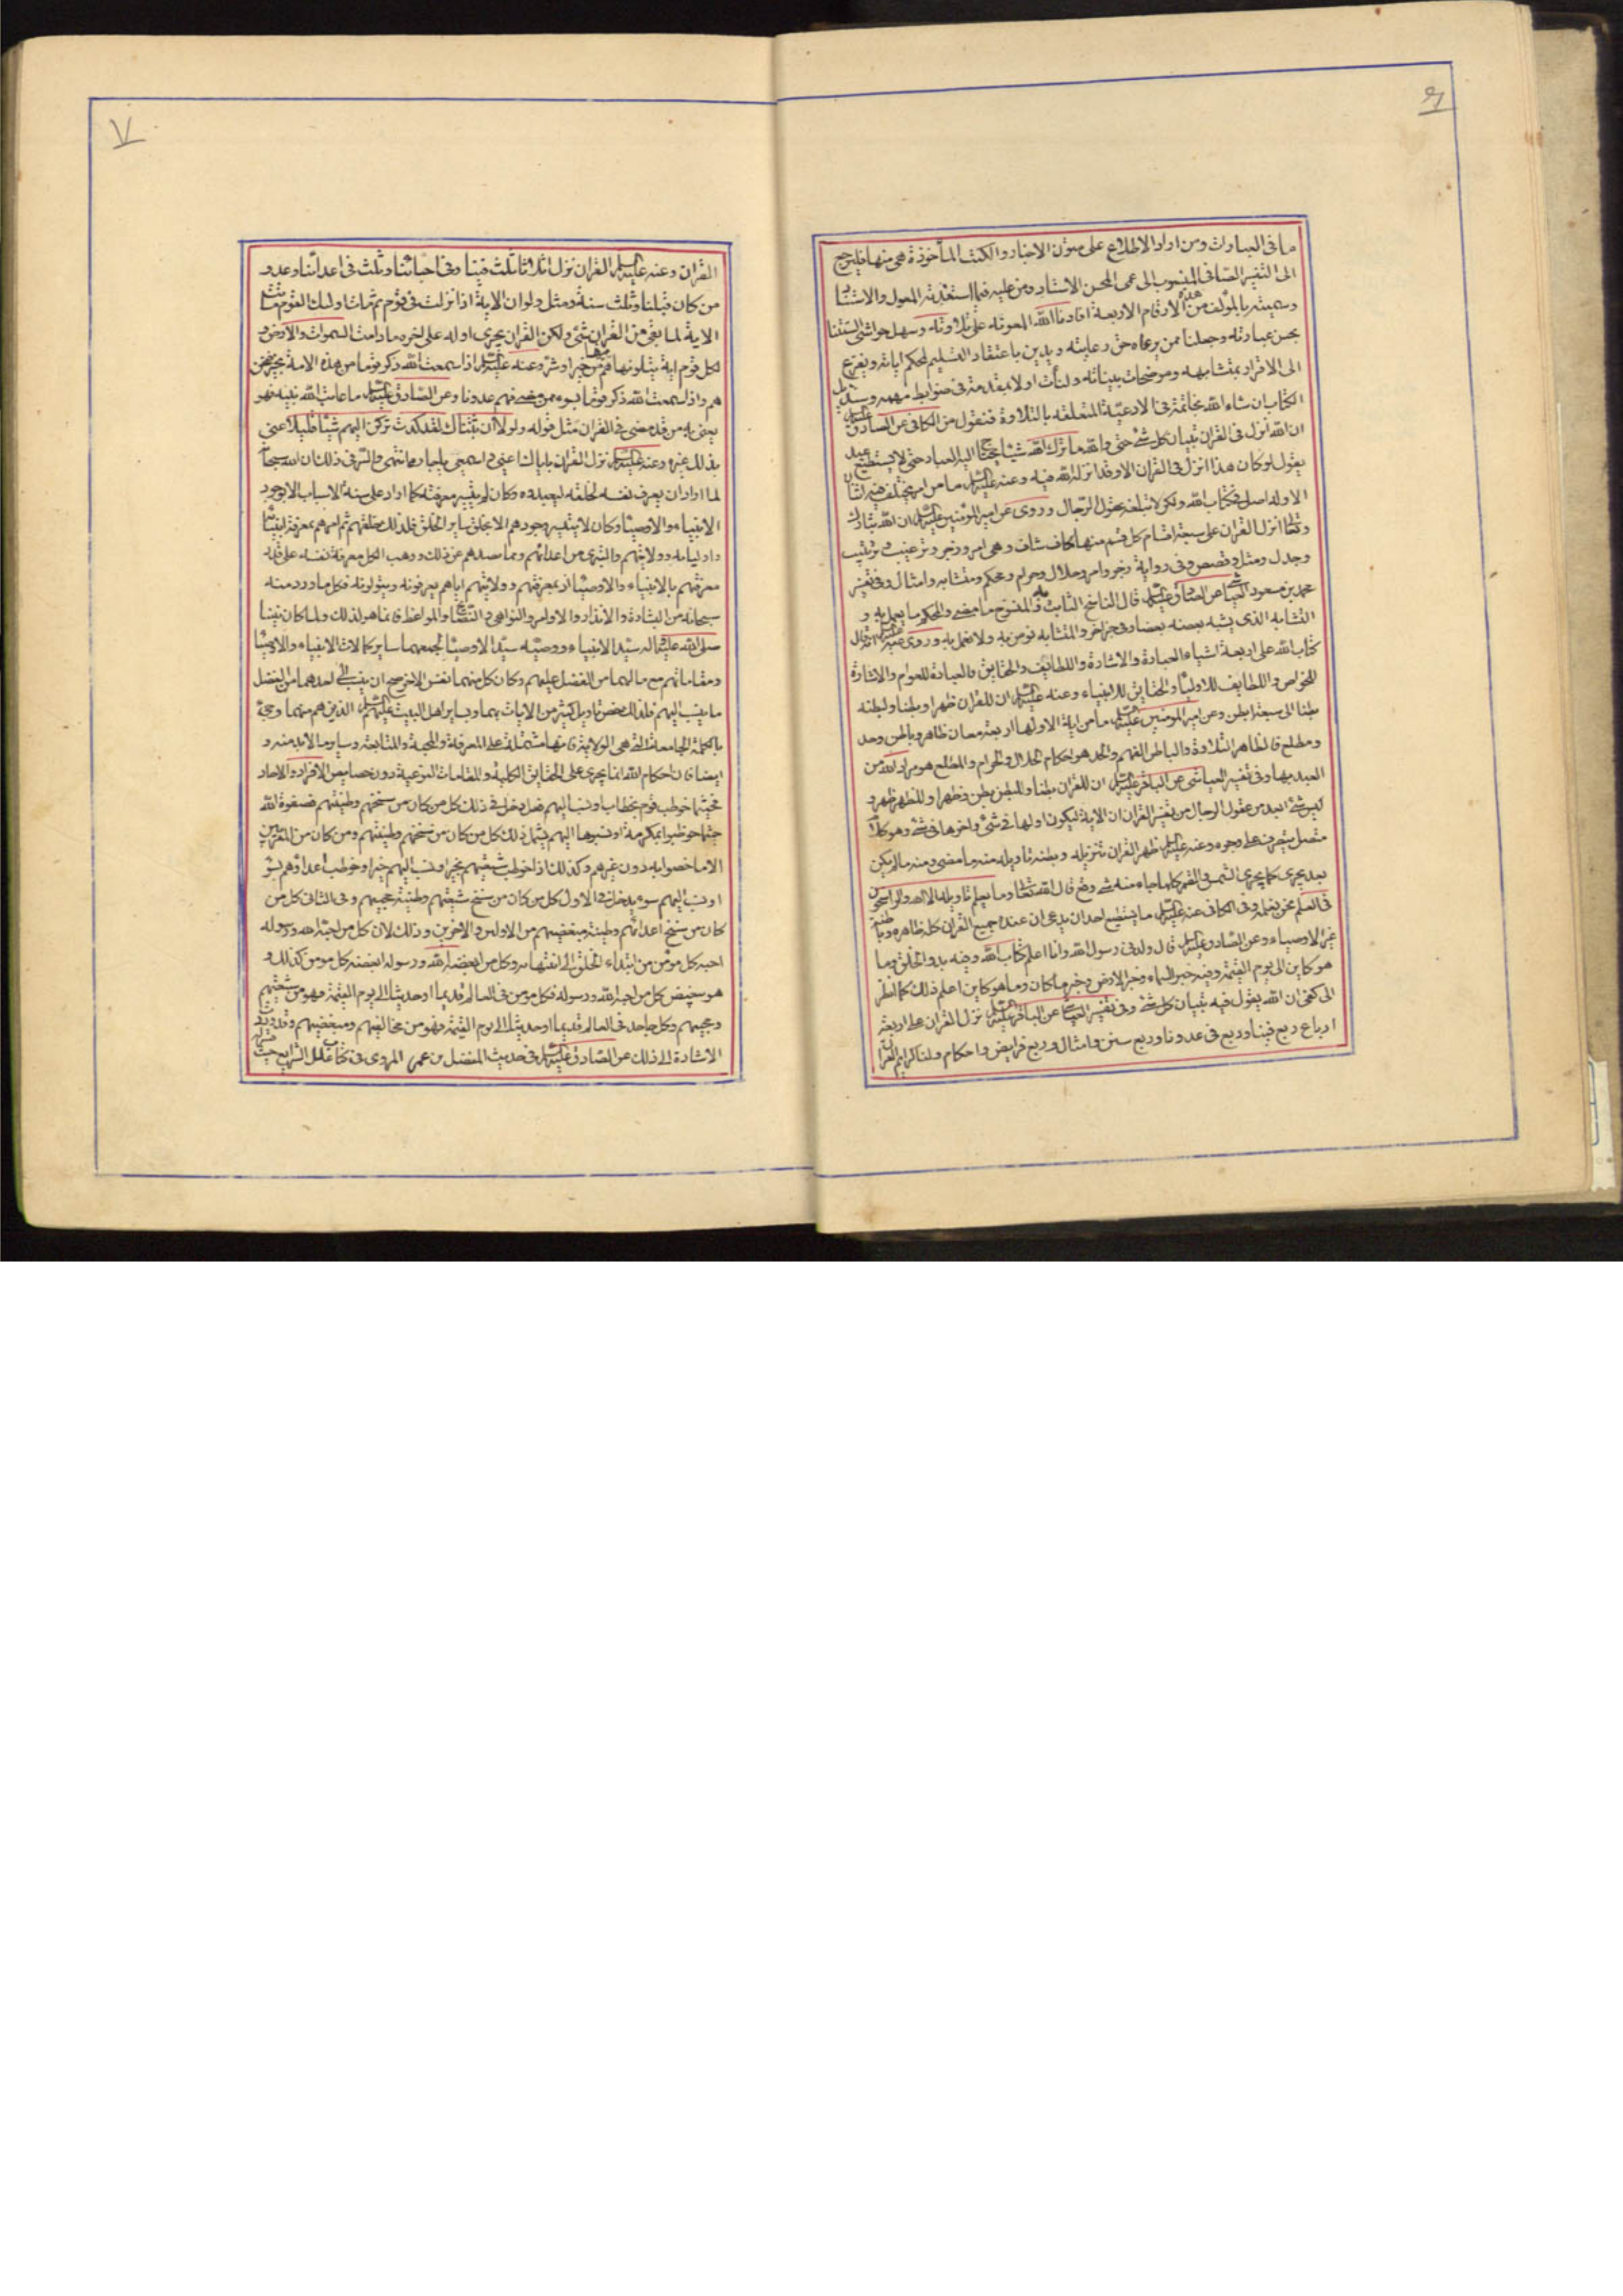 ٦
ما فى العبارات ومن اراد الاطلاع على متون الاخبار والكتب المأخوذة هى منها فليرجع
الى التفسير الصافى المنسوب الى عمى المحسن الاستاد ومن عليه فيما استفدته المعول والاستناد
وسميته بالمؤلف من هذه الارقام الاربعة افادنا الله المعونة على تلاوته وسهل حواشى السنتنا
بحسن عبارته وجعلنا ممن يرعاه حق رعايته ويدين باعتقاد التسليم لمحكم اياته ويفزع
الى الاقرار بمتشابهه وموضحات بيناته ولنأت اولا بمقدمة فى ضوابط مهمة وسنذيل
الكتاب ان شاء الله بخاتمة فى الادعية المتعلقة بالتلاوة فنقول من الكافى عن الصادق عليه السلم
ان الله انزل فى القران تبيان كل شئ حتى والله ما ترك الله شيئا يحتاج اليه العباد حتى لا يستطيع عبد
يقول لو كان هذا انزل فى القران الا وقد انزله الله فيه وعنه عليه السلم ما من امر يختلف فيه اثنان
الا وله اصل فى كتاب الله ولكن لا تبلغه عقول الرجال وروى عن امير المؤمنين عليه السلم ان الله تبارك
وتعالى انزل القران على سبعة اقسام كل قسم منها كاف شاف وهى امر وزجر وترغيب وترهيب
وجدل ومثل وقصص وفى رواية زجر وامر وحلال وحرام ومحكم ومتشابه وامثال وفى تفسير
محمد بن مسعود العياشى عن الصادق عليه السلم قال الناسخ الثابت والمنسوخ ما مضى والمحكم ما يعمل به و
المتشابه الذى يشبه بعضه بعضا وفى خبر اخر والمتشابه نومن به ولا نعمل به وروى عنه عليه السلم انه قال
كتاب الله على اربعة اشياء العبارة والاشارة واللطايف والحقايق فالعبارة للعوام والاشارة
للخواص واللطايف للاولياء والحقايق للانبياء وعنه عليه السلم ان للقران ظهرا وبطنا ولبطنه
بطنا الى سبعة ابطن وعن امير المومنين عليه السلم ما من اية الا ولها اربعة معان ظاهر وباطن وحد
ومطلع فالظاهر التلاوة والباطن الفهم والحد هو احكام الحلال والحرام والمطلع هو مراد الله من
العبد بها وفى تفسير العياشى عن الباقر عليه السلم ان للقران بطنا وللبطن بطن وظهرا وللظهر ظهر و
ليس شئ ابعد من عقول الرجال من تفسير القران ان الاية ليكون اولها فى شئ واخرها فى شئ وهو كلام
متصل يتصرف على وجوه وعنه عليه السلم ظهر القران تنزيله وبطنه تاويله منه ما مضى ومنه ما لم يكن
بعد يجرى كما يجرى الشمس والقمر كلما جاء منه شئ وقع قال الله تعالى وما يعلم تاويله الا الله والراسخون
فى العلم نحن نعلمه وفى الكافى عنه عليه السلم ما يستطيع احد ان يدعى ان عنده جميع القران كله ظاهره وباطنه
غير الاوصياء وعن الصادق عليه السلم قال ولدنى رسول الله وانا اعلم كتاب الله وفيه بدو الخلق وما
هو كاين الى يوم القيمة وفيه خبر السماء وخبر الارض وخبر ما كان وما هو كاين اعلم ذلك كما انظر
الى كفى ان الله يقول فيه تبيان كل شئ وفى تفسير العياشى عن الباقر عليه السلم نزل القران على اربعة
ارباع ربع فينا وربع فى عدونا وربع سنن وامثال وربع فرايض واحكام ولنا كرايم القران
٧
القران وعنه عليه السلم القران نزل اثلاثا ثلث فينا وفى احبائنا وثلث فى اعدائنا وعدو
من كان قبلنا وثلث سنة ومثل ولو ان الاية اذا نزلت فى قوم ثم مات اولئك القوم ماتت
الاية لما بقى من القران شئ ولكن القران يجرى اوله على اخره ما دامت السموات والارض و
لكل قوم اية يتلونها هم منها من خير او شر وعنه عليه السلم اذا سمعت الله ذكر قوما من هذه الامة بخير فنحن
هم واذا سمعت الله ذكر قوما بسوء ممن مضى فهم عدونا وعن الصادق عليه السلم ما عاتب الله نبيه فهو
يعنى به من قد مضى فى القران مثل قوله ولولا ان ثبتناك لقد كدت تركن اليهم شيئا قليلا عنى
بذلك غيره وعنه عليه السلم نزل القران باياك اعنى واسمعى يا جارة انتهى والسر فى ذلك ان الله سبحانه
لما اراد ان يعرف نفسه لخلقه ليعبدوه وكان لم يتيسر معرفته كما اراد على سنة الاسباب الا بوجود
الانبياء والاوصياء وكان لا يتيسر وجودهم الا بخلق ساير الخلق فلذلك خلقهم ثم امرهم بمعرفة انبيائه
واوليائه وولايتهم والتبرى من اعدائهم ومما صدهم عن ذلك ووهب الكل معرفة نفسه على قدر
معرفتهم بالانبياء والاوصياء اذ بمعرفتهم وولايتهم اياهم يعرفونه ويتولونه فكل ما ورد منه
سبحانه من البشارة والانذار والاوامر والنواهى والنصايح والمواعظ فانما هو لذلك ولما كان نبينا
صلى الله عليه واله سيد الانبياء ووصيه سيد الاوصياء لجمعهما ساير كمالات الانبياء والاوصياء
ومقاماتهم مع ما لهما من الفضل عليهم وكان كل منهما نفس الاخر صح ان ينسب الى احدهما من الفضل
ما ينسب اليهم فلذلك خص تاويل كثير من الايات بهما وبساير اهل البيت عليهم السلم الذين هم منهما وجئ
بالكلمة الجامعة التى هى الولاية فانها مشتملة على المعرفة والمحبة والمتابعة وساير ما لابد منه و
ايضا فان احكام الله انما يجرى على الحقايق الكلية والمقامات النوعية دون خصايص الافراد والاحاد
فحيثما خوطب قوم بخطاب او نسب اليهم فعل دخل فى ذلك كل من كان من سنخهم وطينتهم فصفوة الله
حيثما خوطبوا بمكرمة او نسبوها اليهم يشمل ذلك كل من كان من سنخهم وطينتهم ومن كان من المقربين
الا ما خصوا به دون غيرهم وكذلك اذا خوطب شيعتهم بخير او نسب اليهم خيرا وخوطب اعداؤهم بسوء
او نسب اليهم سوء يدخل فى الاول كل من كان من سنخ شيعتهم وطينة محبيهم وفى الثانى كل من
كان من سنخ اعدائهم وطينة مبغضيهم من الاولين والاخرين وذلك لان كل من احبه الله ورسوله
احبه كل مؤمن من ابتداء الخلق الى انتهائه وكل من ابغضه الله ورسوله ابغضه كل مومن كذلك و
هو يبغض كل من احبه الله ورسوله فكل مومن فى العالم قديما او حديثا الى يوم القيمة فهو من شيعتهم
ومحبيهم وكل جاحد فى العالم قديما او حديثا الى يوم القيمة فهو من مخالفيهم ومبغضيهم وقد وردت
الاشارة الى ذلك عن الصادق عليه السلم فى حديث المفضل بن عمر المروى فى كتاب علل الشرايع حيث